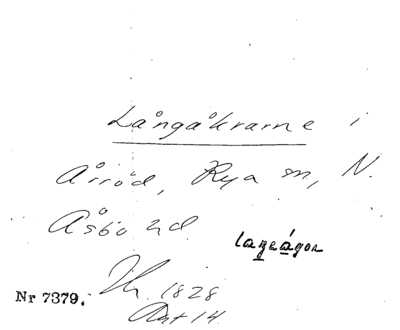 Långåkrarne i
Årröd, Rya sn, N.
Åsbo hd.
lageågor
Nr 7379. 1828
Akt 14